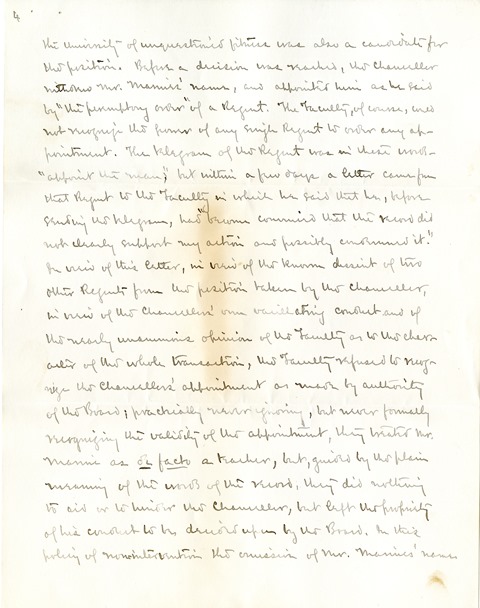 4
the University of unquestioned fitness was also a candidate for
the position. Before a decision was reached, the Chancellor
withdrew Mr. Mannie's name, and appointed him as he said
by "the peremptory order" of a Regent. The Faculty, of course, could
not recognize the power of any single Regent to order any ap-
pointment. The telegram of the Regent was in these words—
"appoint the man;" but within a few days a letter came from
that Regent to the Faculty in which he said that he, before
sending the telegram, had "become convinced that the record did
not clearly support my action and possibly condemned it."
In view of this letter, in view of the known dissent of two
other Regents from the position taken by the Chancellor,
in view of the Chancellor's own vacillating conduct and of
the nearly unanimous opinion of the Faculty as to the char-
acter of the whole transaction, the Faculty refused to recog-
nize the Chancellor's appointment as made by authority
of the Board; practically never ignoring, but never formally
recognizing the validity of the appointment, they treated Mr.
Mannie as de facto a teacher, but, guided by the plain
meaning of the words of the record, they did nothing
to aid or to hinder the Chancellor, but left the propriety
of his conduct to be decided upon by the Board. In this
policy of nonintervention the omission of Mr. Mannie's name